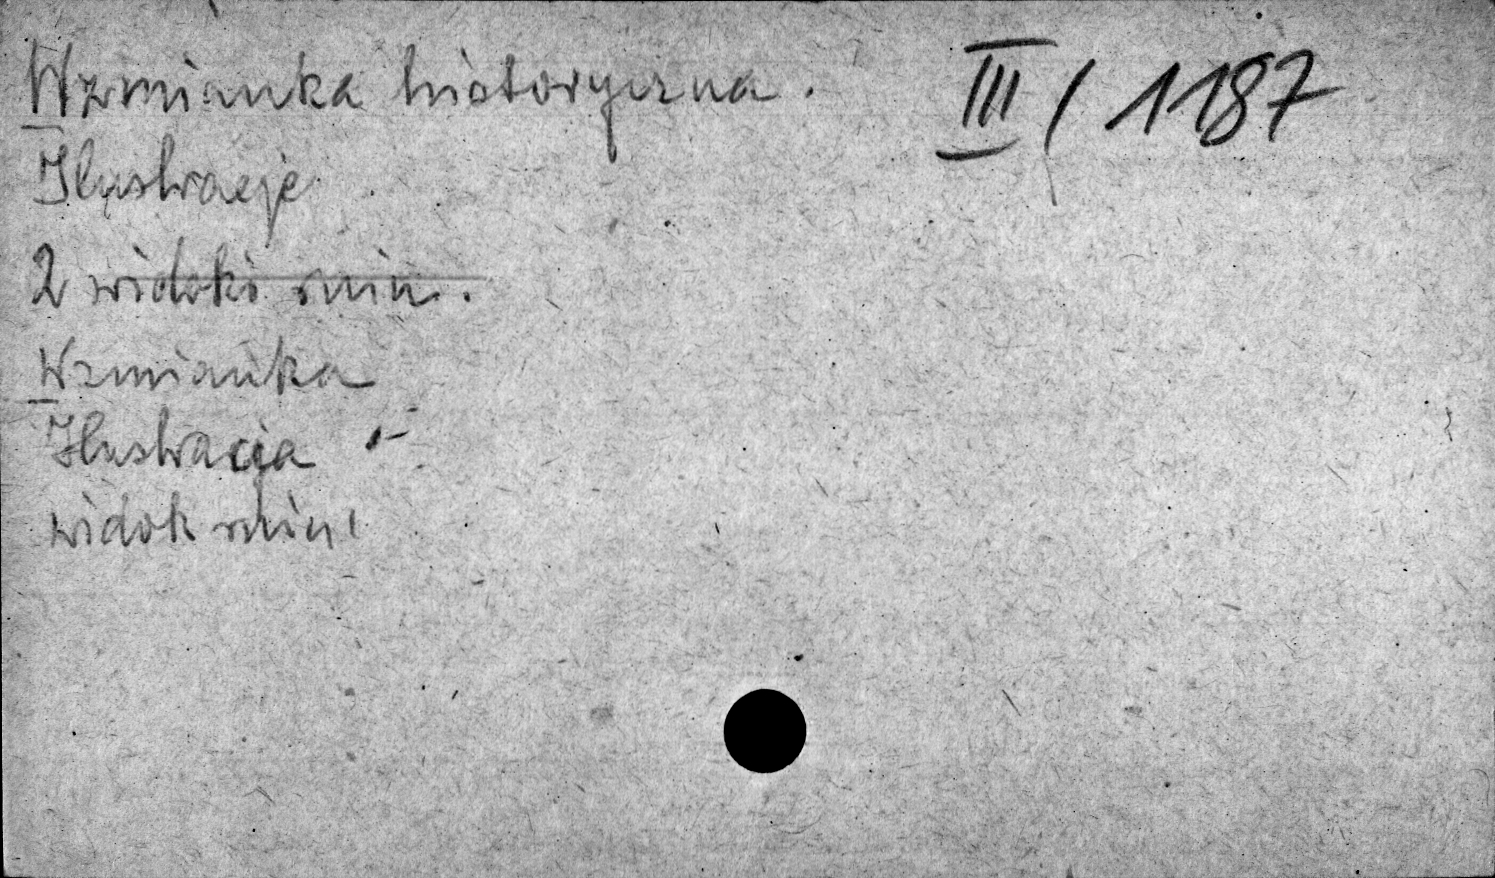 Wzmianka historyczna. III/1187
Ilustracje
2 widoki ruin.
Wzmianka
Ilustracja
widok ruin